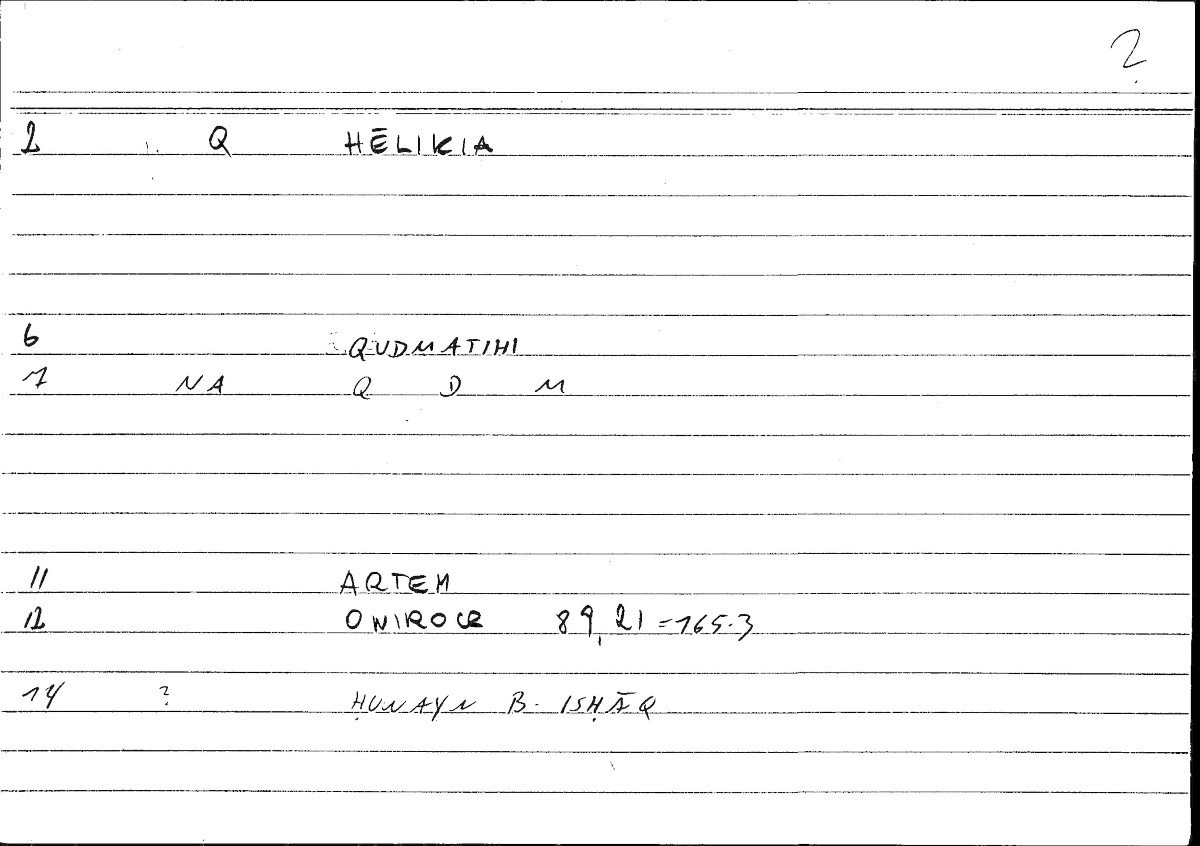 ?
2 Q HĒLIKIA
6 QUDMATIHI
7 NA Q D M
11 ARTEM
12 ONIROCR 89,21=165.3
14 ? ḤUNAYN B. ISḤĀQ